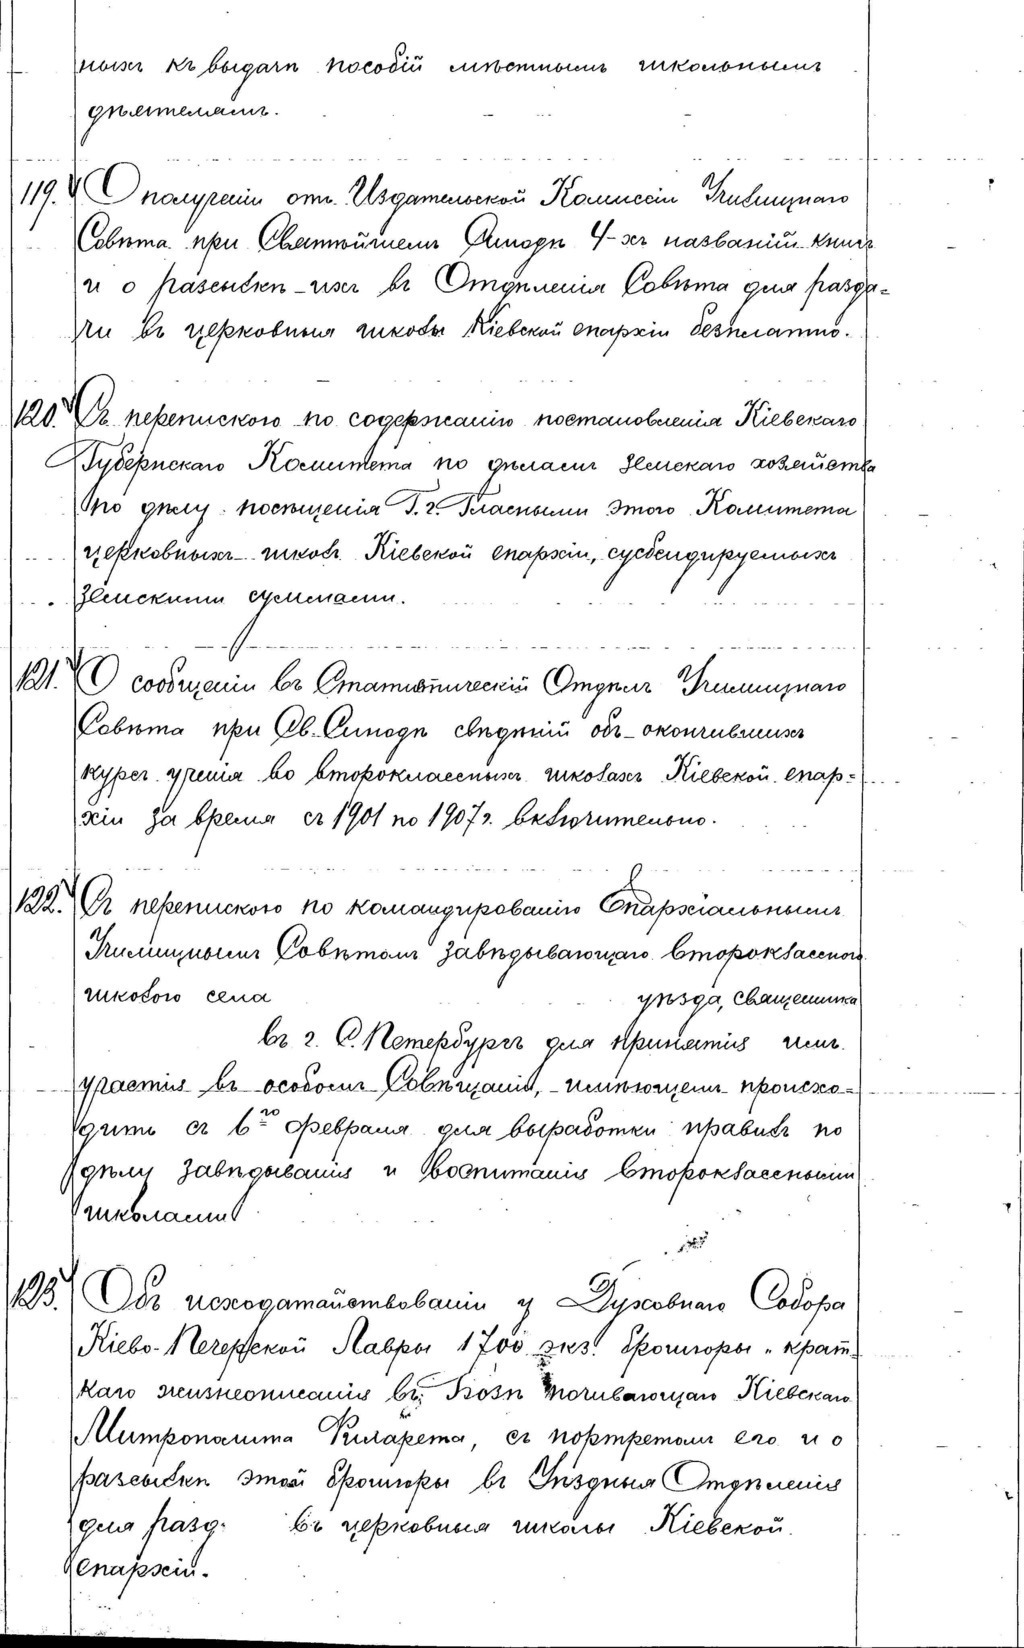 ныхъ къ выдачѣ пособій мѣстнымъ школьнымъ
дѣятелямъ.
119. О полученіи отъ Издательской Комиссіи Училищнаго
Совѣта при Святѣйшемъ Синодѣ 4-хъ названій книгъ
и о разсылкѣ ихъ въ Отдѣленія Совѣта для разда=
чи въ церковныя школы Кіевской епархіи безплатно.
120. Съ перепискою по содержанію постановленія Кіевскаго
Губернскаго Комитета по дѣламъ Земскаго хозяйства
по дѣлу посѣщенія Г.г. Гласными этого Комитета
церковныхъ школъ Кіевской епархіи, субсидируемыхъ
Земскими суммами.
121. О сообщеніи въ Статистическій Отдѣлъ Училищнаго
Совѣта при Св. Синодѣ свѣдѣній объ окончившихъ
курсъ ученія во второклассныхъ школахъ Кіевской епар=
хіи за время съ 1901 по 1907 г. включительно.
122. Съ перепискою по командированію Епархіальнымъ
Училищнымъ Совѣтомъ завѣдывающаго второклассною
школою села уѣзда, священника
въ г. С. Петербургъ для принятія имъ
участія въ особомъ Совѣщаніи, имѣющемъ происхо=
дить съ 6го февраля для выработки правилъ по
дѣлу завѣдыванія и воспитанія второклассными
школами
123. Объ исходатайствованіи у Духовнаго Собора
Кіево-Печерской Лавры 1700 экз. брошюры „крат=
каго жизнеописанія въ Бозѣ почивающаго Кіевскаго
Митрополита Филарета, съ портретомъ его и о
разсылкѣ этой брошюры въ Уѣздныя Отдѣленія
для разд. въ церковныя школы Кіевской
епархіи.